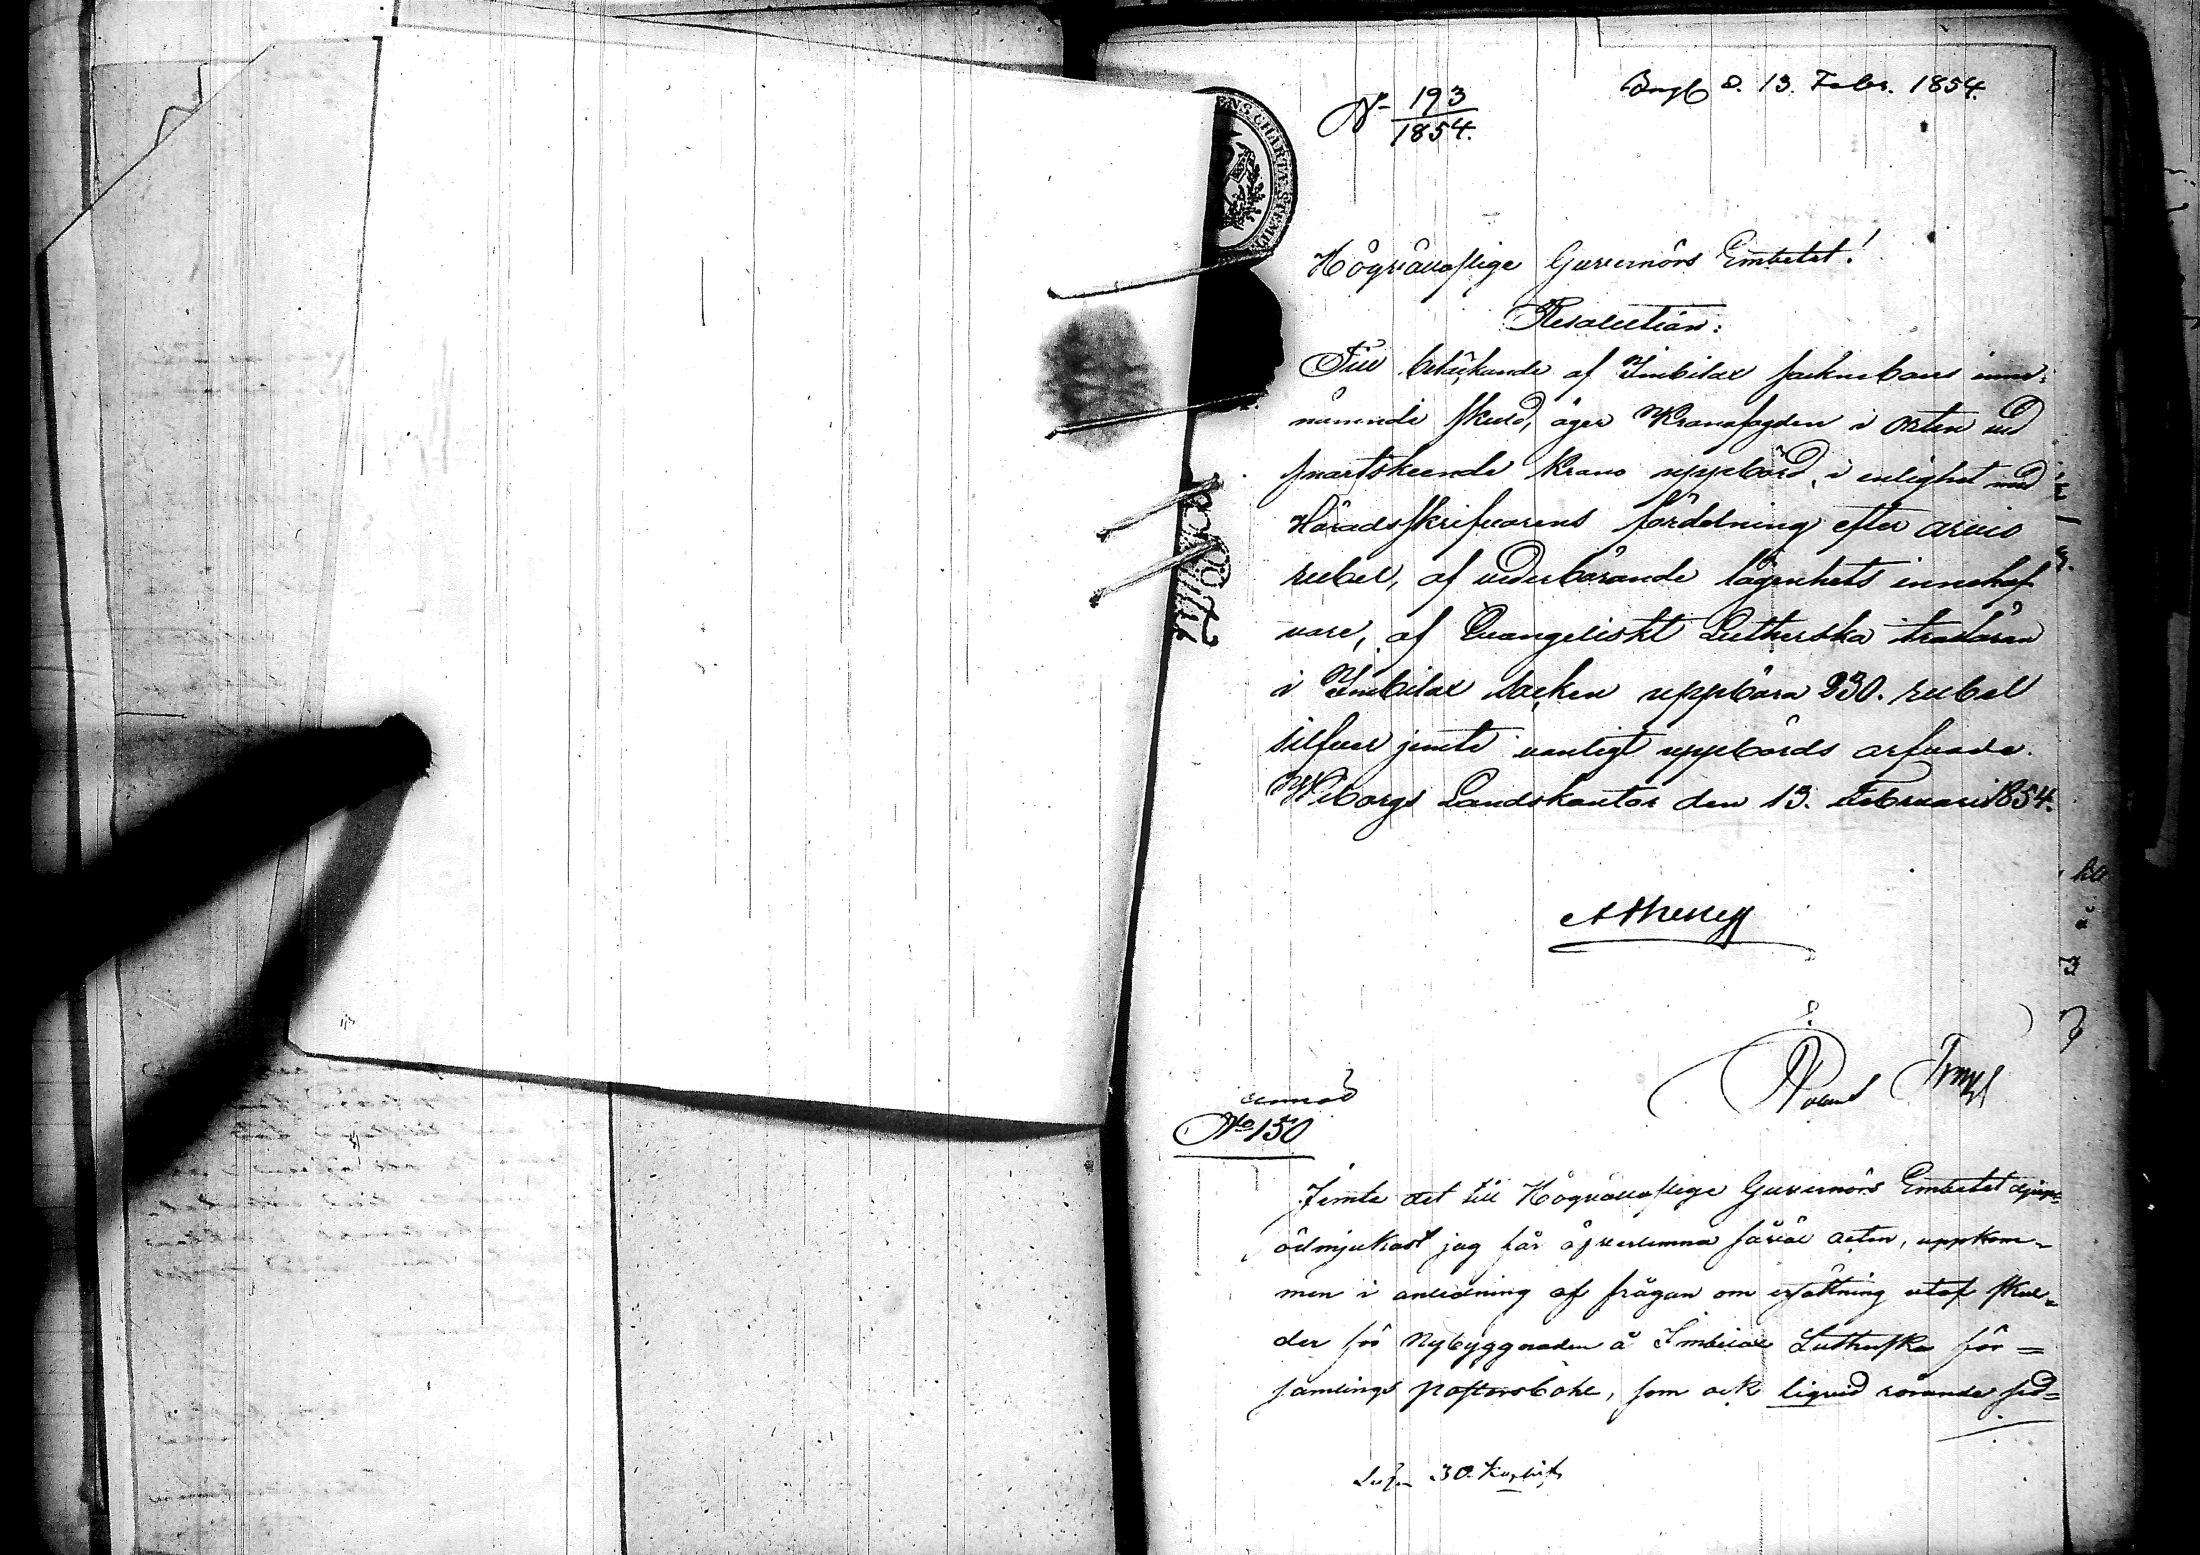 No 193/1854.
Ingb d. 13. Febr. 1854.
Högvällofliga Guvernörs Embetet!
Resolution:
Till betäckande af Imbilax socknebors inne-
nämnde skuld, äger Kronofogden i orten vid
snartskeende krono uppbörd, i enlighet med
Häradsskrifvarens fördelning efter arvio
rubel, af vederbörande lägenhets innehaf
vare, af Evangeliskt Lutherska trosläran
i Imbilax socken uppbära 230. rubel
silfver jemte vanligt uppbörds arfvode.
Wiborgs Landskontor den 13. Februari 1854.
No 150
Jemte det till Högvällofliga Guvernörs Embetet djup-
ödmjukast jag får öfverlemna såväl acten, uppkom-
men i anledning af frågan om ersättning utaf skul-
der för Nybyggnaden å Imbilax Lutherska för=
samlings pastorsbohl, som ock liqvid rörande sed=
Lösen 30. Kop. silf.